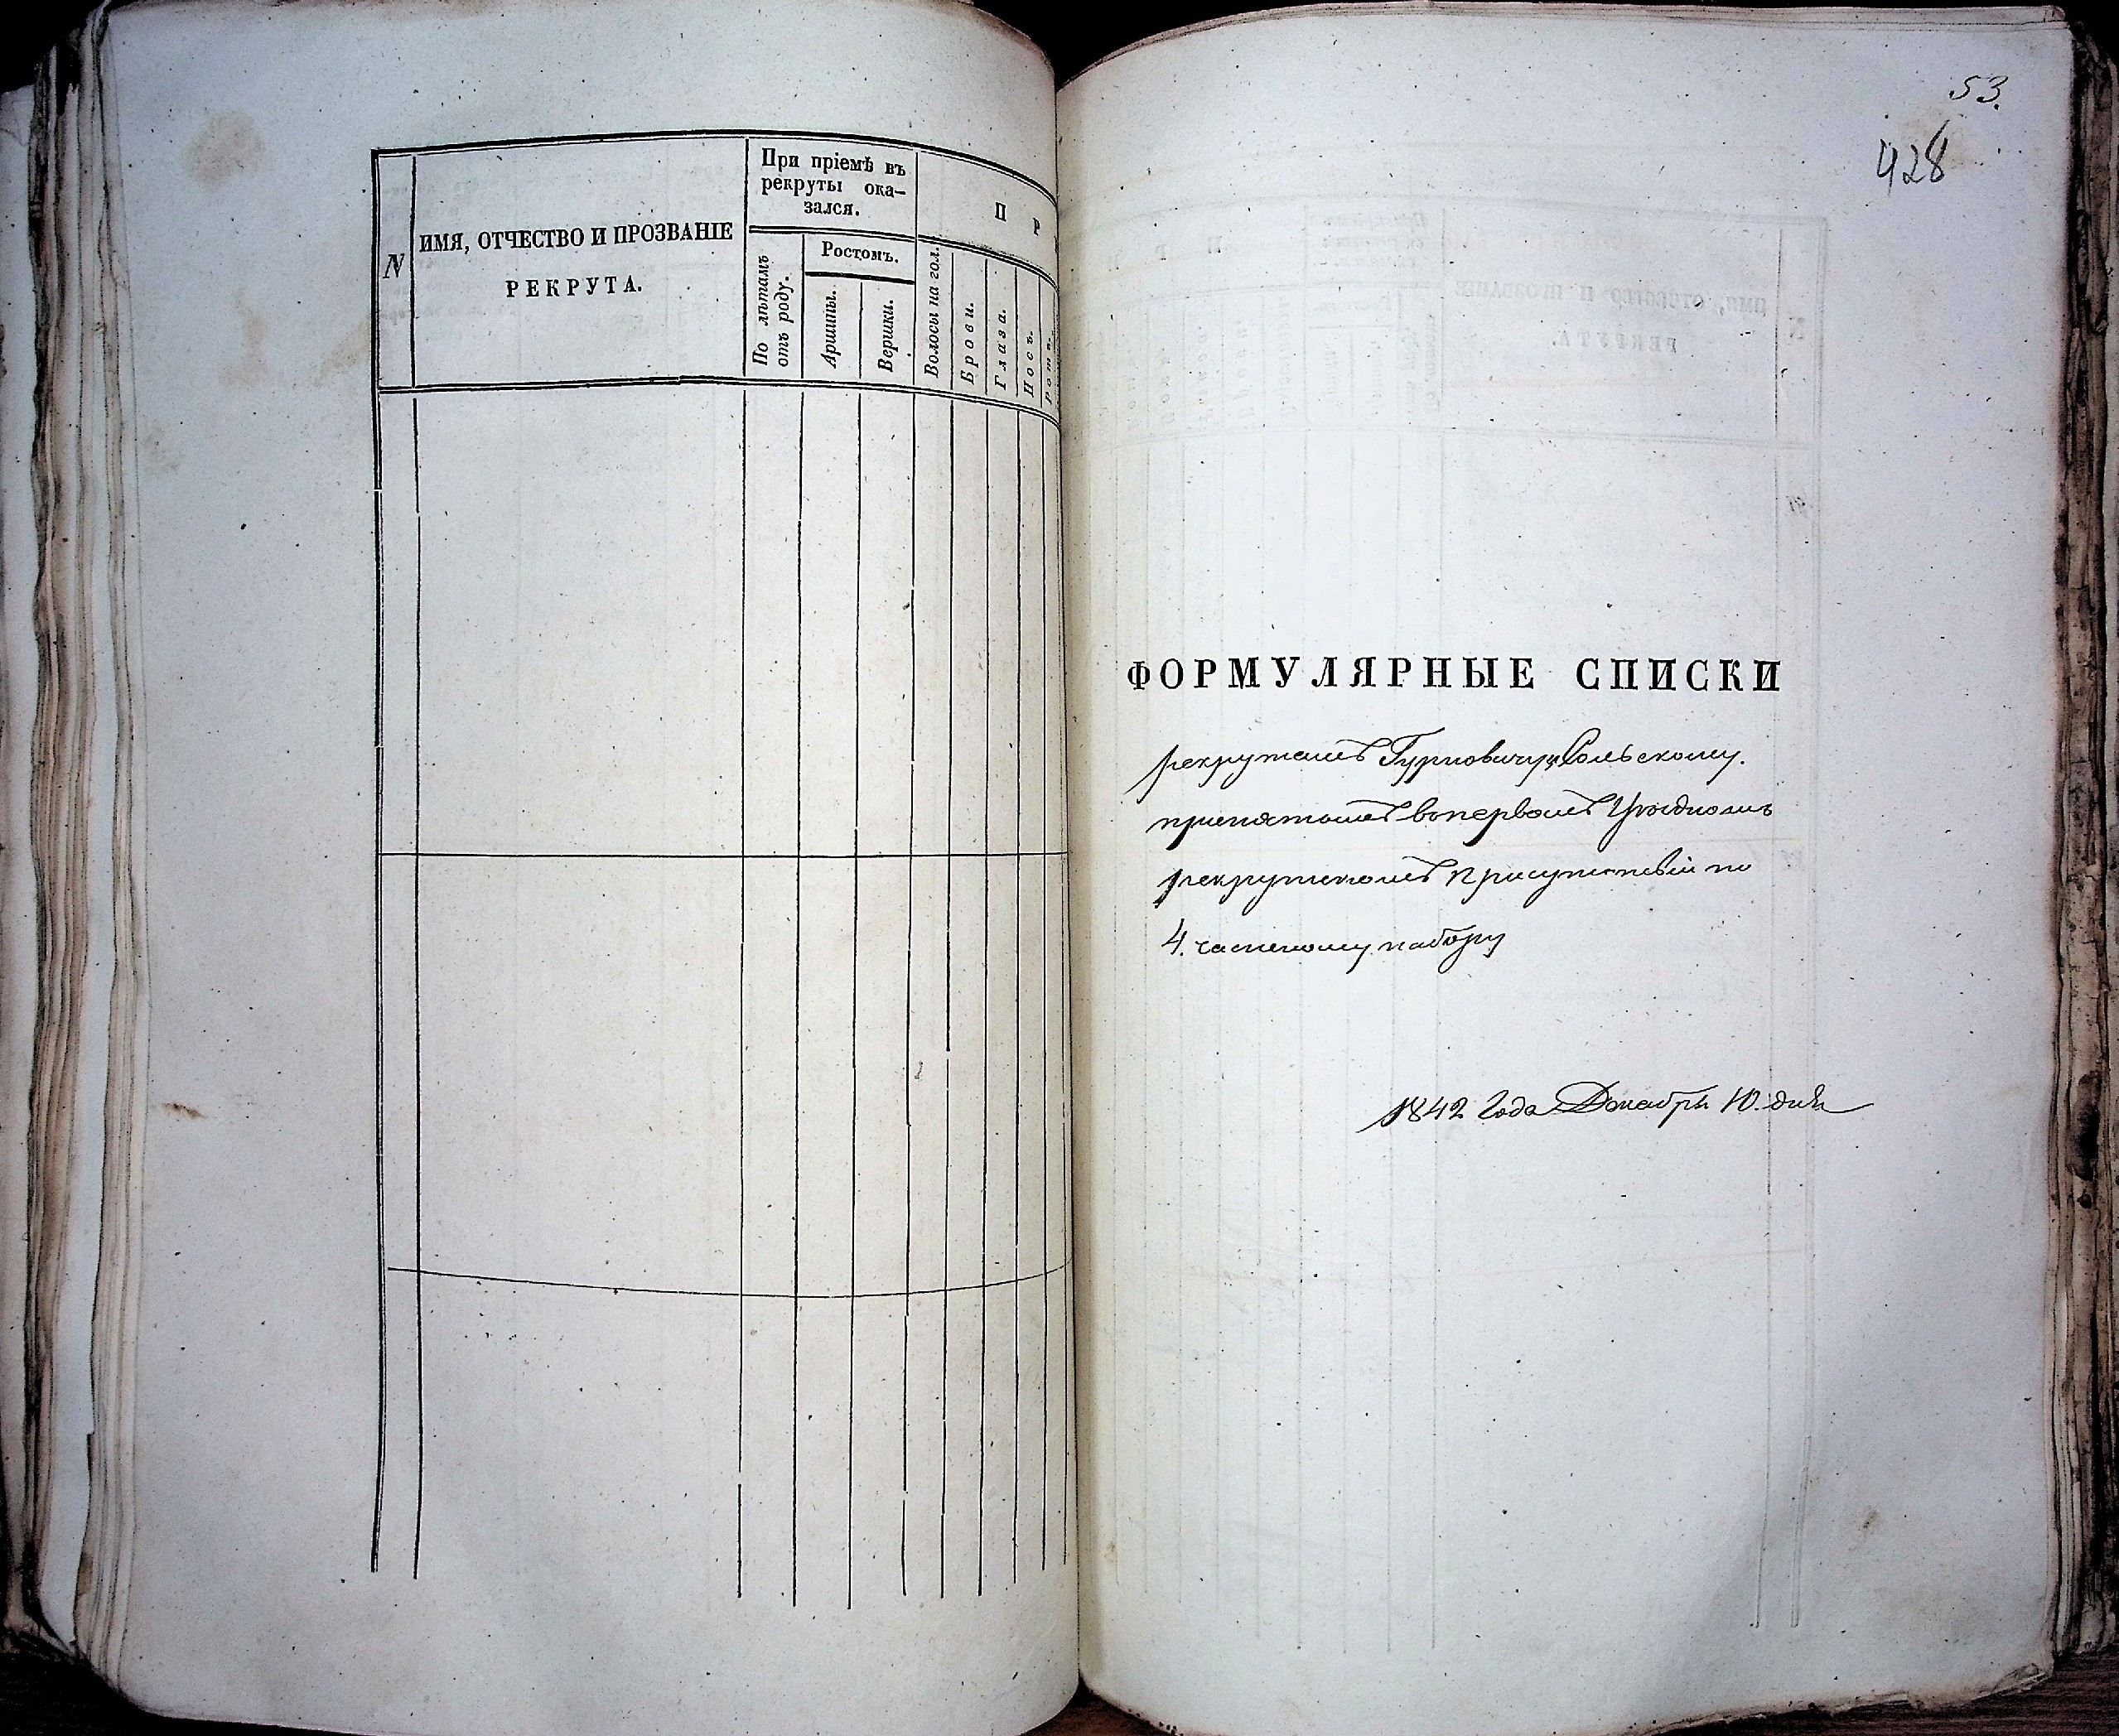 N
ИМЯ, ОТЧЕСТВО И ПРОЗВАНІЕ
РЕКРУТА.
При пріемѣ въ
рекруты ока-
зался.
По лѣтамъ
отъ роду.
Ростомъ.
Аршины.
Вершки.
П Р
Волосы на гол.
Брови.
Глаза.
Носъ.
Ротъ.
53.
428
ФОРМУЛЯРНЫЕ СПИСКИ
рекрутамъ
принятомъ вопервомъ Уѣздномъ
рекрутскомъ Присутствіи по
4. частному набору
1842 Года Декабря 10. дня